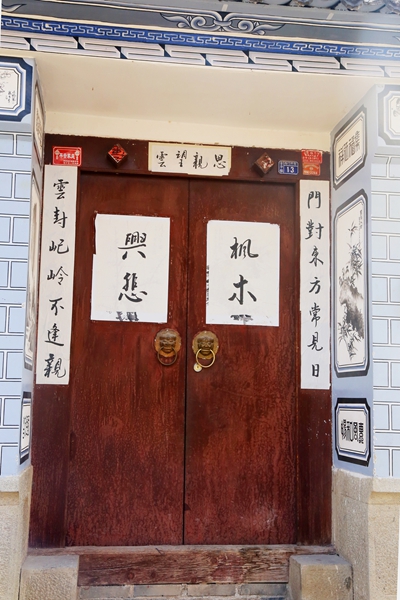 思親望雲
門對東方常見日
枫木
興悲
雲封屺岭不逢親
13